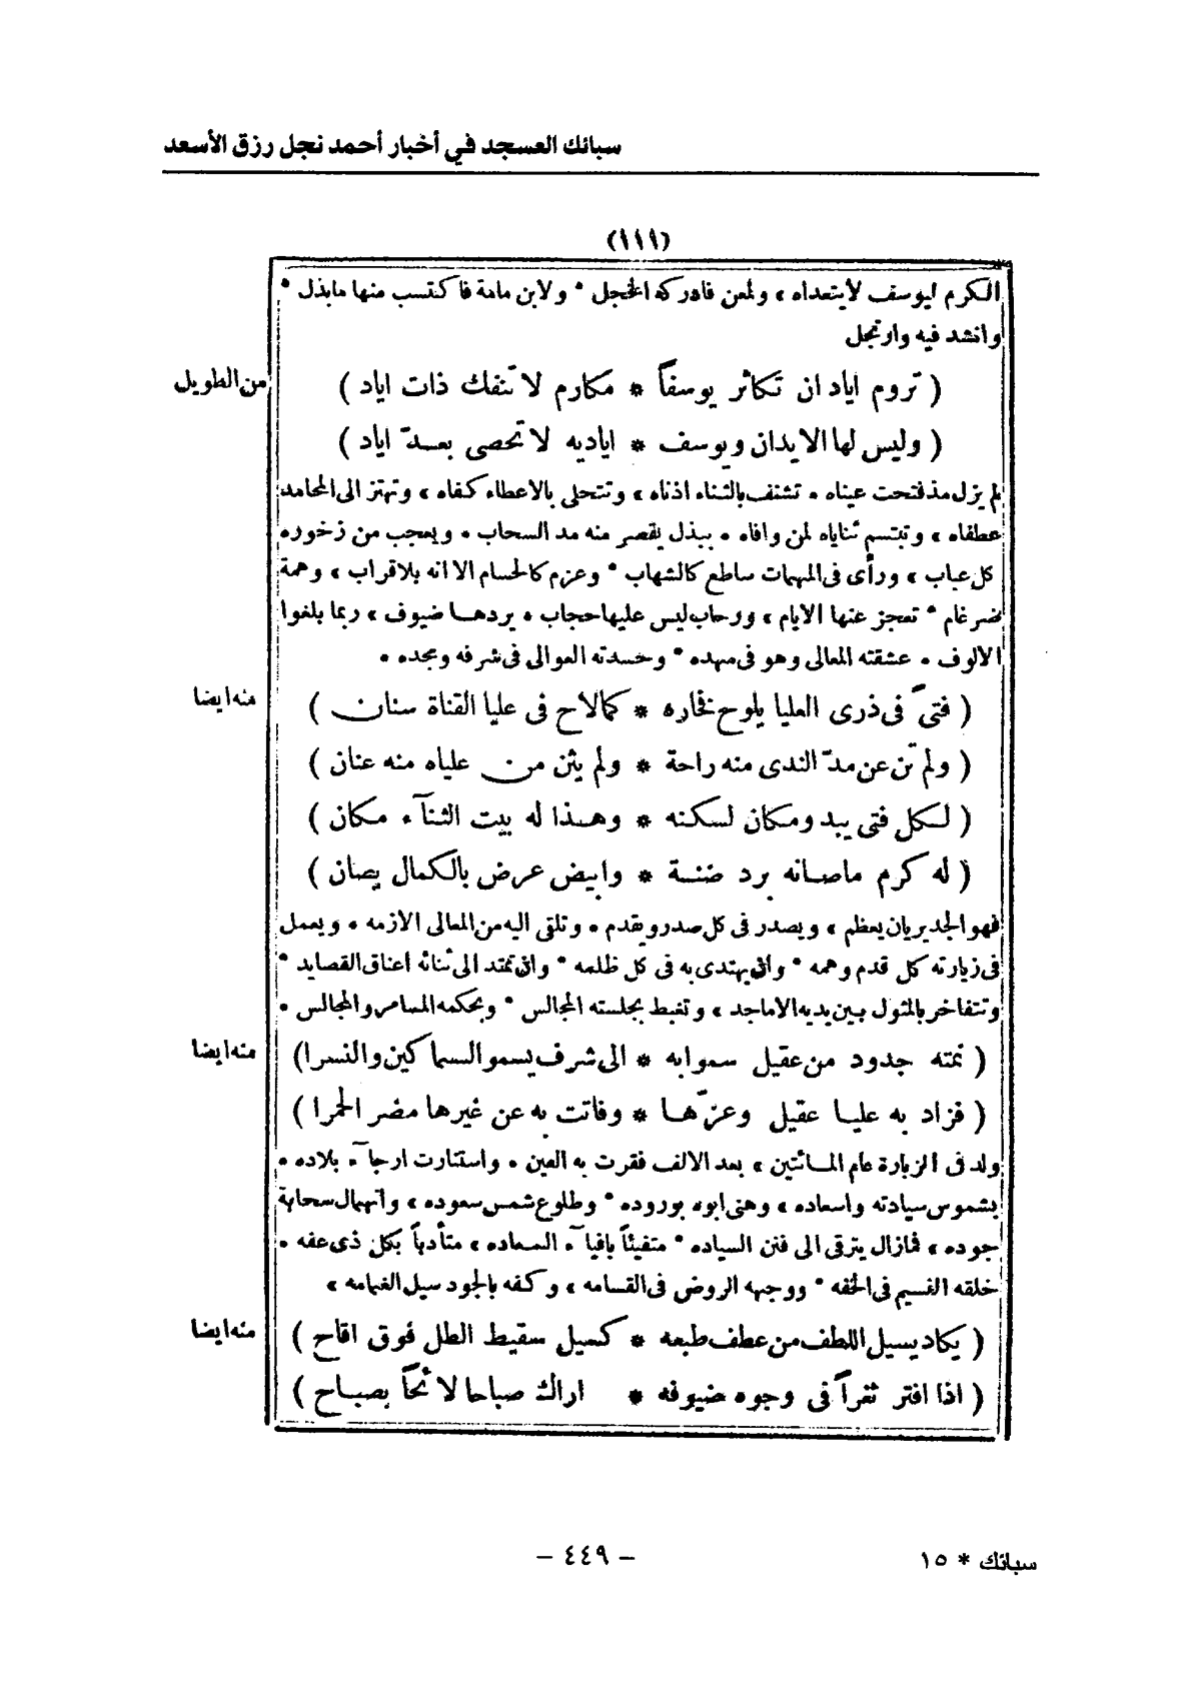 سبائك العسجد في أخبار أحمد نجل رزق الأسعد
(١١١)
الكرم ليوسف لايتعداه ، ولمعن فادركه الخجل * ولابن مامة فاكتسب منها مابذل *
وانشد فيه وارتجل
من الطويل
( تروم اياد ان تكاثر يوسفاً * مكارم لا تنفك ذات اياد )
( وليس لها الا يدان ويوسف * اياديه لا تحصى بعـدّ اياد )
لم يزل مذ فتحت عيناه • تشنف بالثناء اذناه ، وتتحلى بالاعطاء كفاه ، وتهتز الى المحامد
عطفاه ، وتبتسم ثناياه لمن وافاه • ببذل يقصر منه مد السحاب • ويعجب من زخوره
كل عباب ، ورأى فى المهمات ساطع كالشهاب * وعزم كالحسام الا انه بلا قراب ، وهمة
ضرغام * تعجز عنها الايام ، ورحاب ليس عليها حجاب • يردهـا ضيوف ، ربما بلغوا
الالوف • عشقته المعالى وهو فى مهده * وحسدته العوالى فى شرفه ومجده •
منه ايضا
( فتىً فى ذرى العليا يلوح فخاره * كمالاح فى عليا القناة سنان )
( ولم تن عن مدّ الندى منه راحة * ولم يثن من علياه منه عنان )
( لكل فتى يبدو مكان لسكنه * وهـذا له بيت الثنآء مكان )
( له كرم ماصانه برد ضنـة * وابيض عرض بالكمال يصان )
فهو الجدير بان يعظم ، ويصدر فى كل صدر ويقدم • وتلقى اليه من المعالى الازمه • ويعمل
فى زيارته كل قدم وهمه * وان يهتدى به فى كل ظلمه * وان تمتد الى ثنائه اعناق القصايد *
وتتفاخر بالمثول بين يديه الاماجد ، وتغبط بجلسته المجالس * وبحكمه المسامر والمجالس •
منه ايضا
( نمته جدود من عقيل سموا به * الى شرف يسمو السماكين والنسرا)
( فزاد به عليا عقيل وعزّهـا * وفاتت به عن غيرها مضر الحمرا )
ولد فى الزبارة عام المـائتين ، بعد الالف فقرت به العين • واستنارت ارجآء بلاده •
بشموس سيادته واسعاده ، وهنى ابوه بوروده * وطلوع شمس سعوده ، وانهمال سحابة
جوده ، فمازال يترقى الى فنن السياده * متفيئاً بافيآء السعاده ، متأدباً بكل ذى عفه •
خلقه النسيم فى الخفه * ووجهه الروض فى القسامه ، وكفه بالجود سيل الغمامه ،
منه ايضا
( يكاد يسيل اللطف من عطف طبعه * كميل سقيط الطل فوق اقاح )
( اذا افتر ثغراً فى وجوه ضيوفه * اراك صباحا لائحاً بصباح )
سبائك * ١٥
– ٤٤٩ –